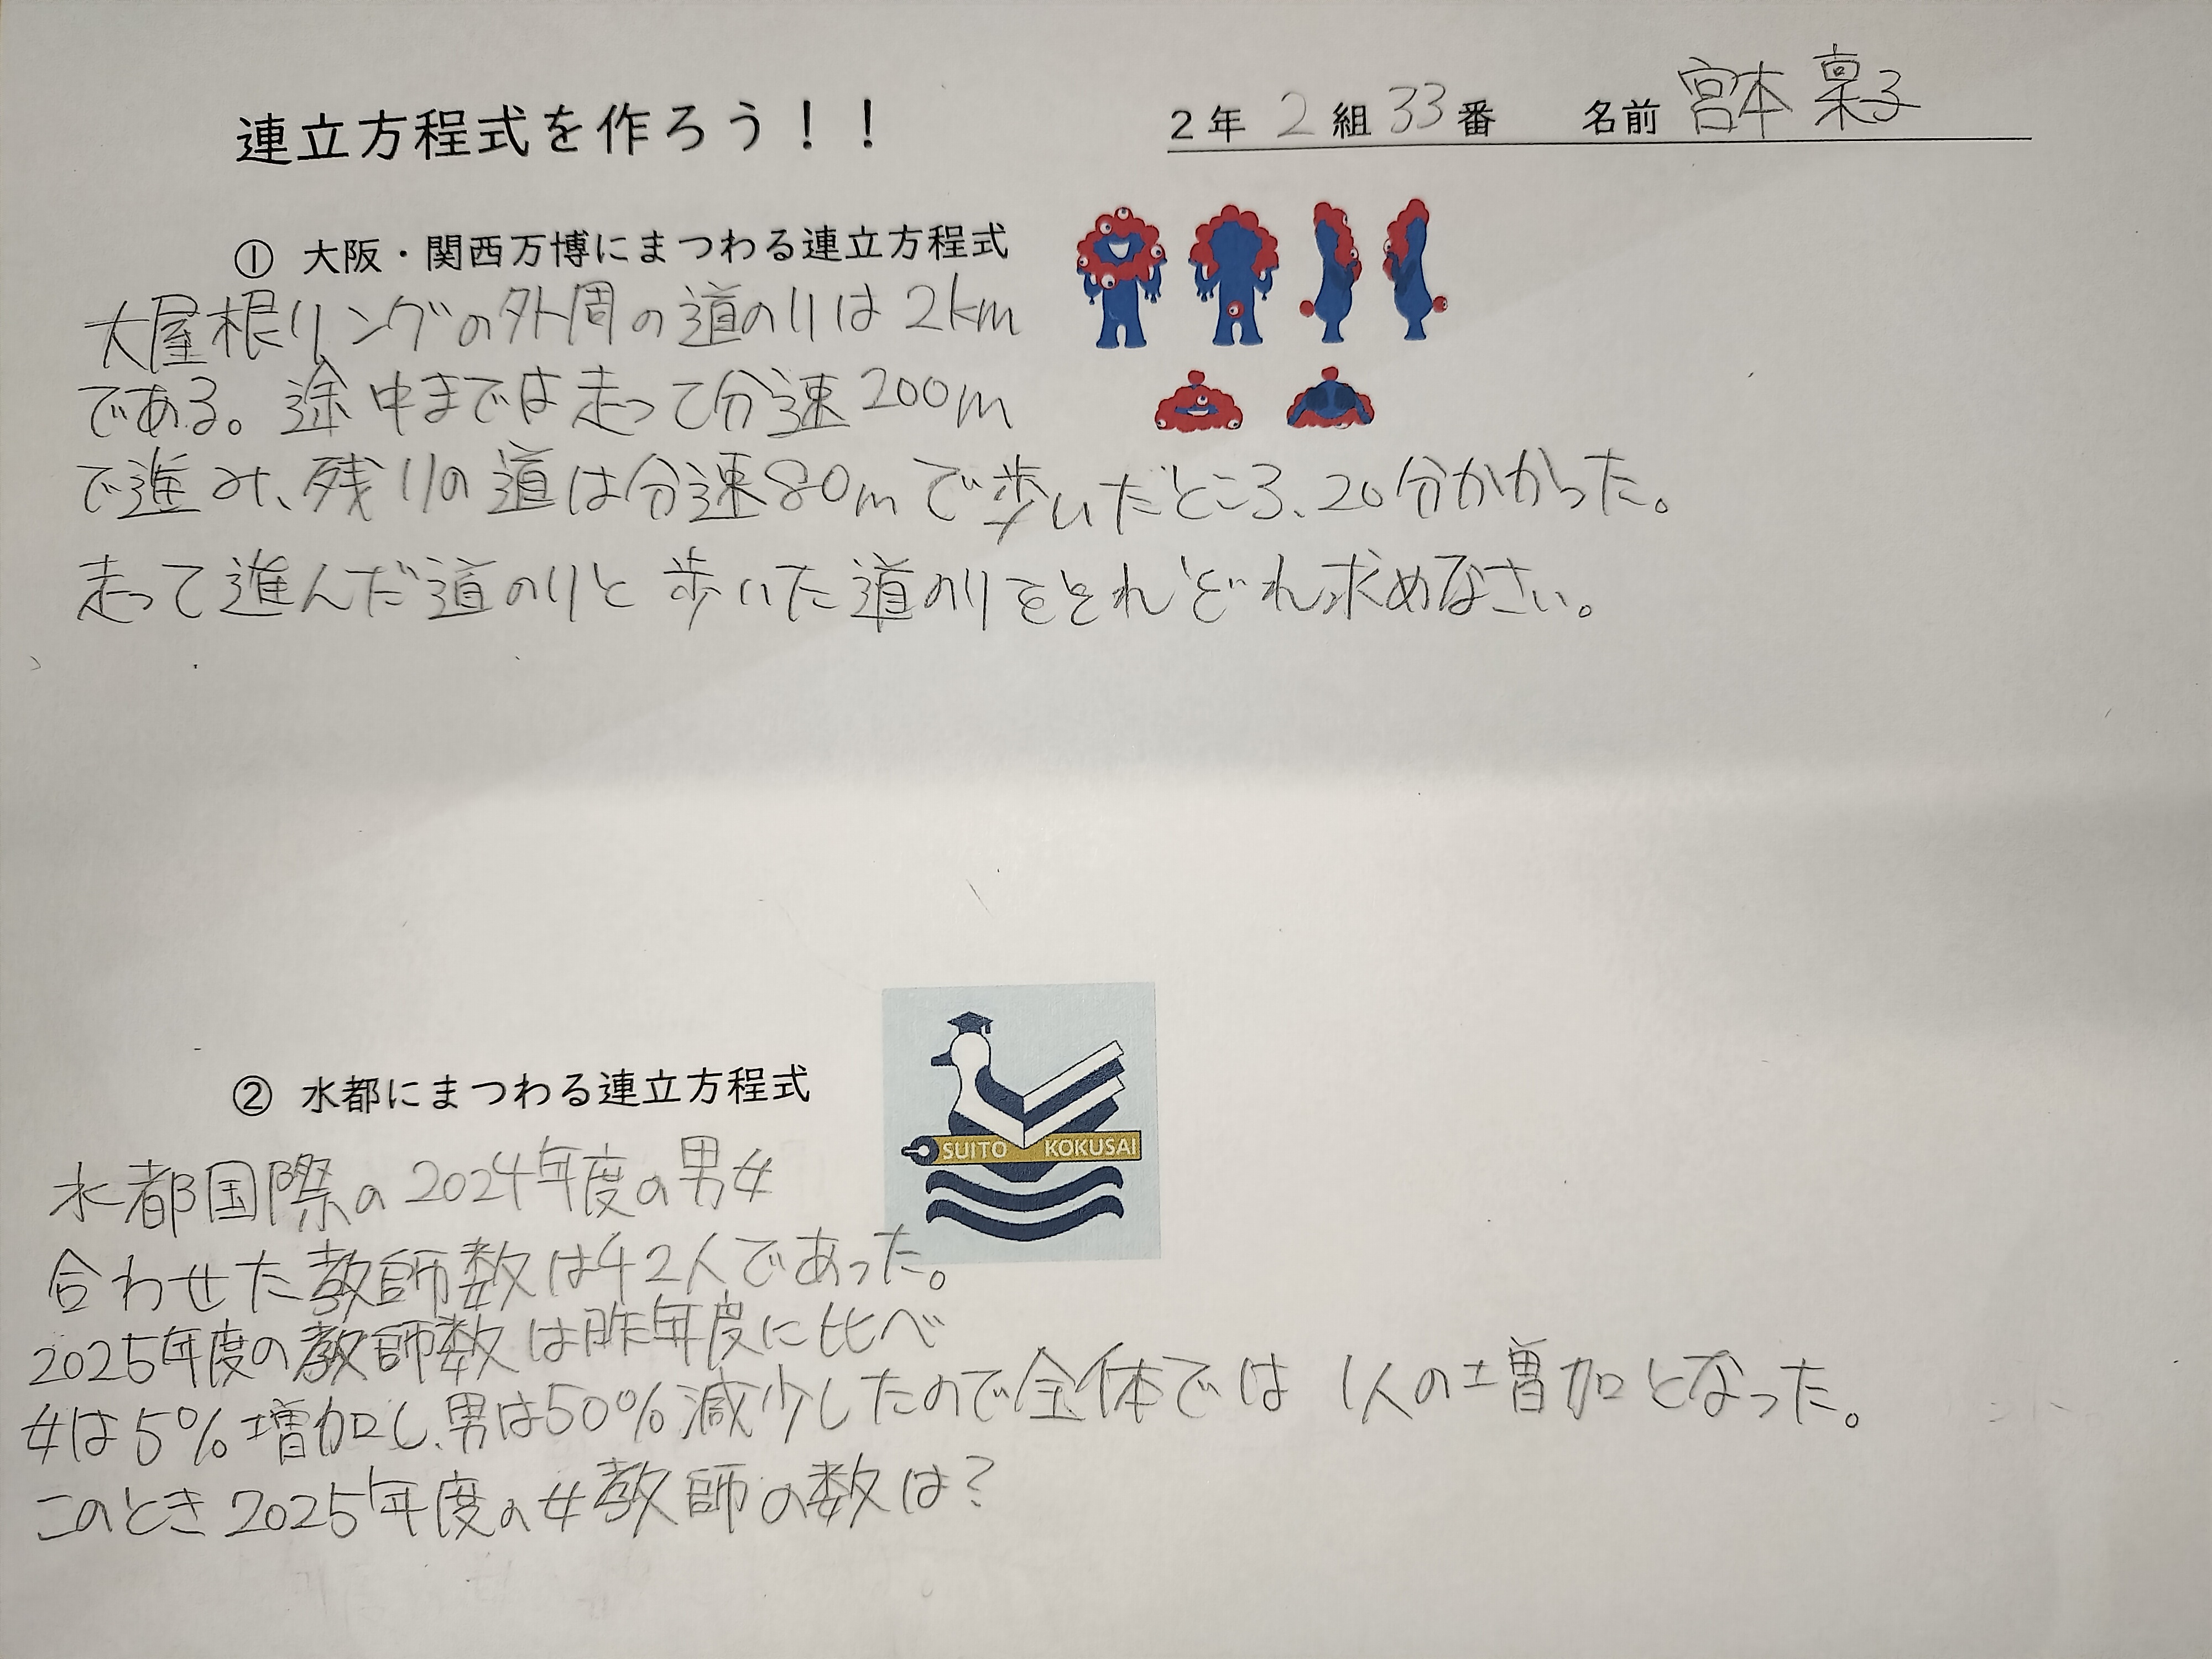 連立方程式を作ろう！！
2年 2 組 33 番 名前 宮本 稟子
① 大阪・関西万博にまつわる連立方程式
大屋根リングの外周の道のりは 2km
である。途中までは走って分速200m
で進み、残りの道は分速80mで歩いたところ、20分かかった。
走って進んだ道のりと歩いた道のりをそれぞれ求めなさい。
② 水都にまつわる連立方程式
SUITO KOKUSAI
水都国際の2024年度の男女
合わせた教師数は42人であった。
2025年度の教師数は昨年度に比べ
女は5%増加し、男は50%減少したので全体では 1人の増加となった。
このとき2025年度の女教師の数は?